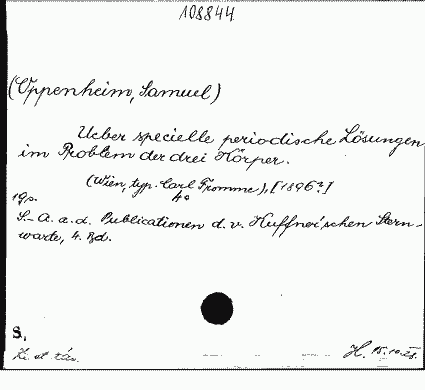 108844
(Oppenheim, Samuel)
Ueber specielle periodische Lösungen
im Problem der drei Körper.
(Wien, typ. Carl Fromme), [1896?]
19p. 4°
S.-A. a. d. Publicationen d. v. Kuffner'schen Stern-
warte, 4. Bd.
S.
H. 15.10.25.